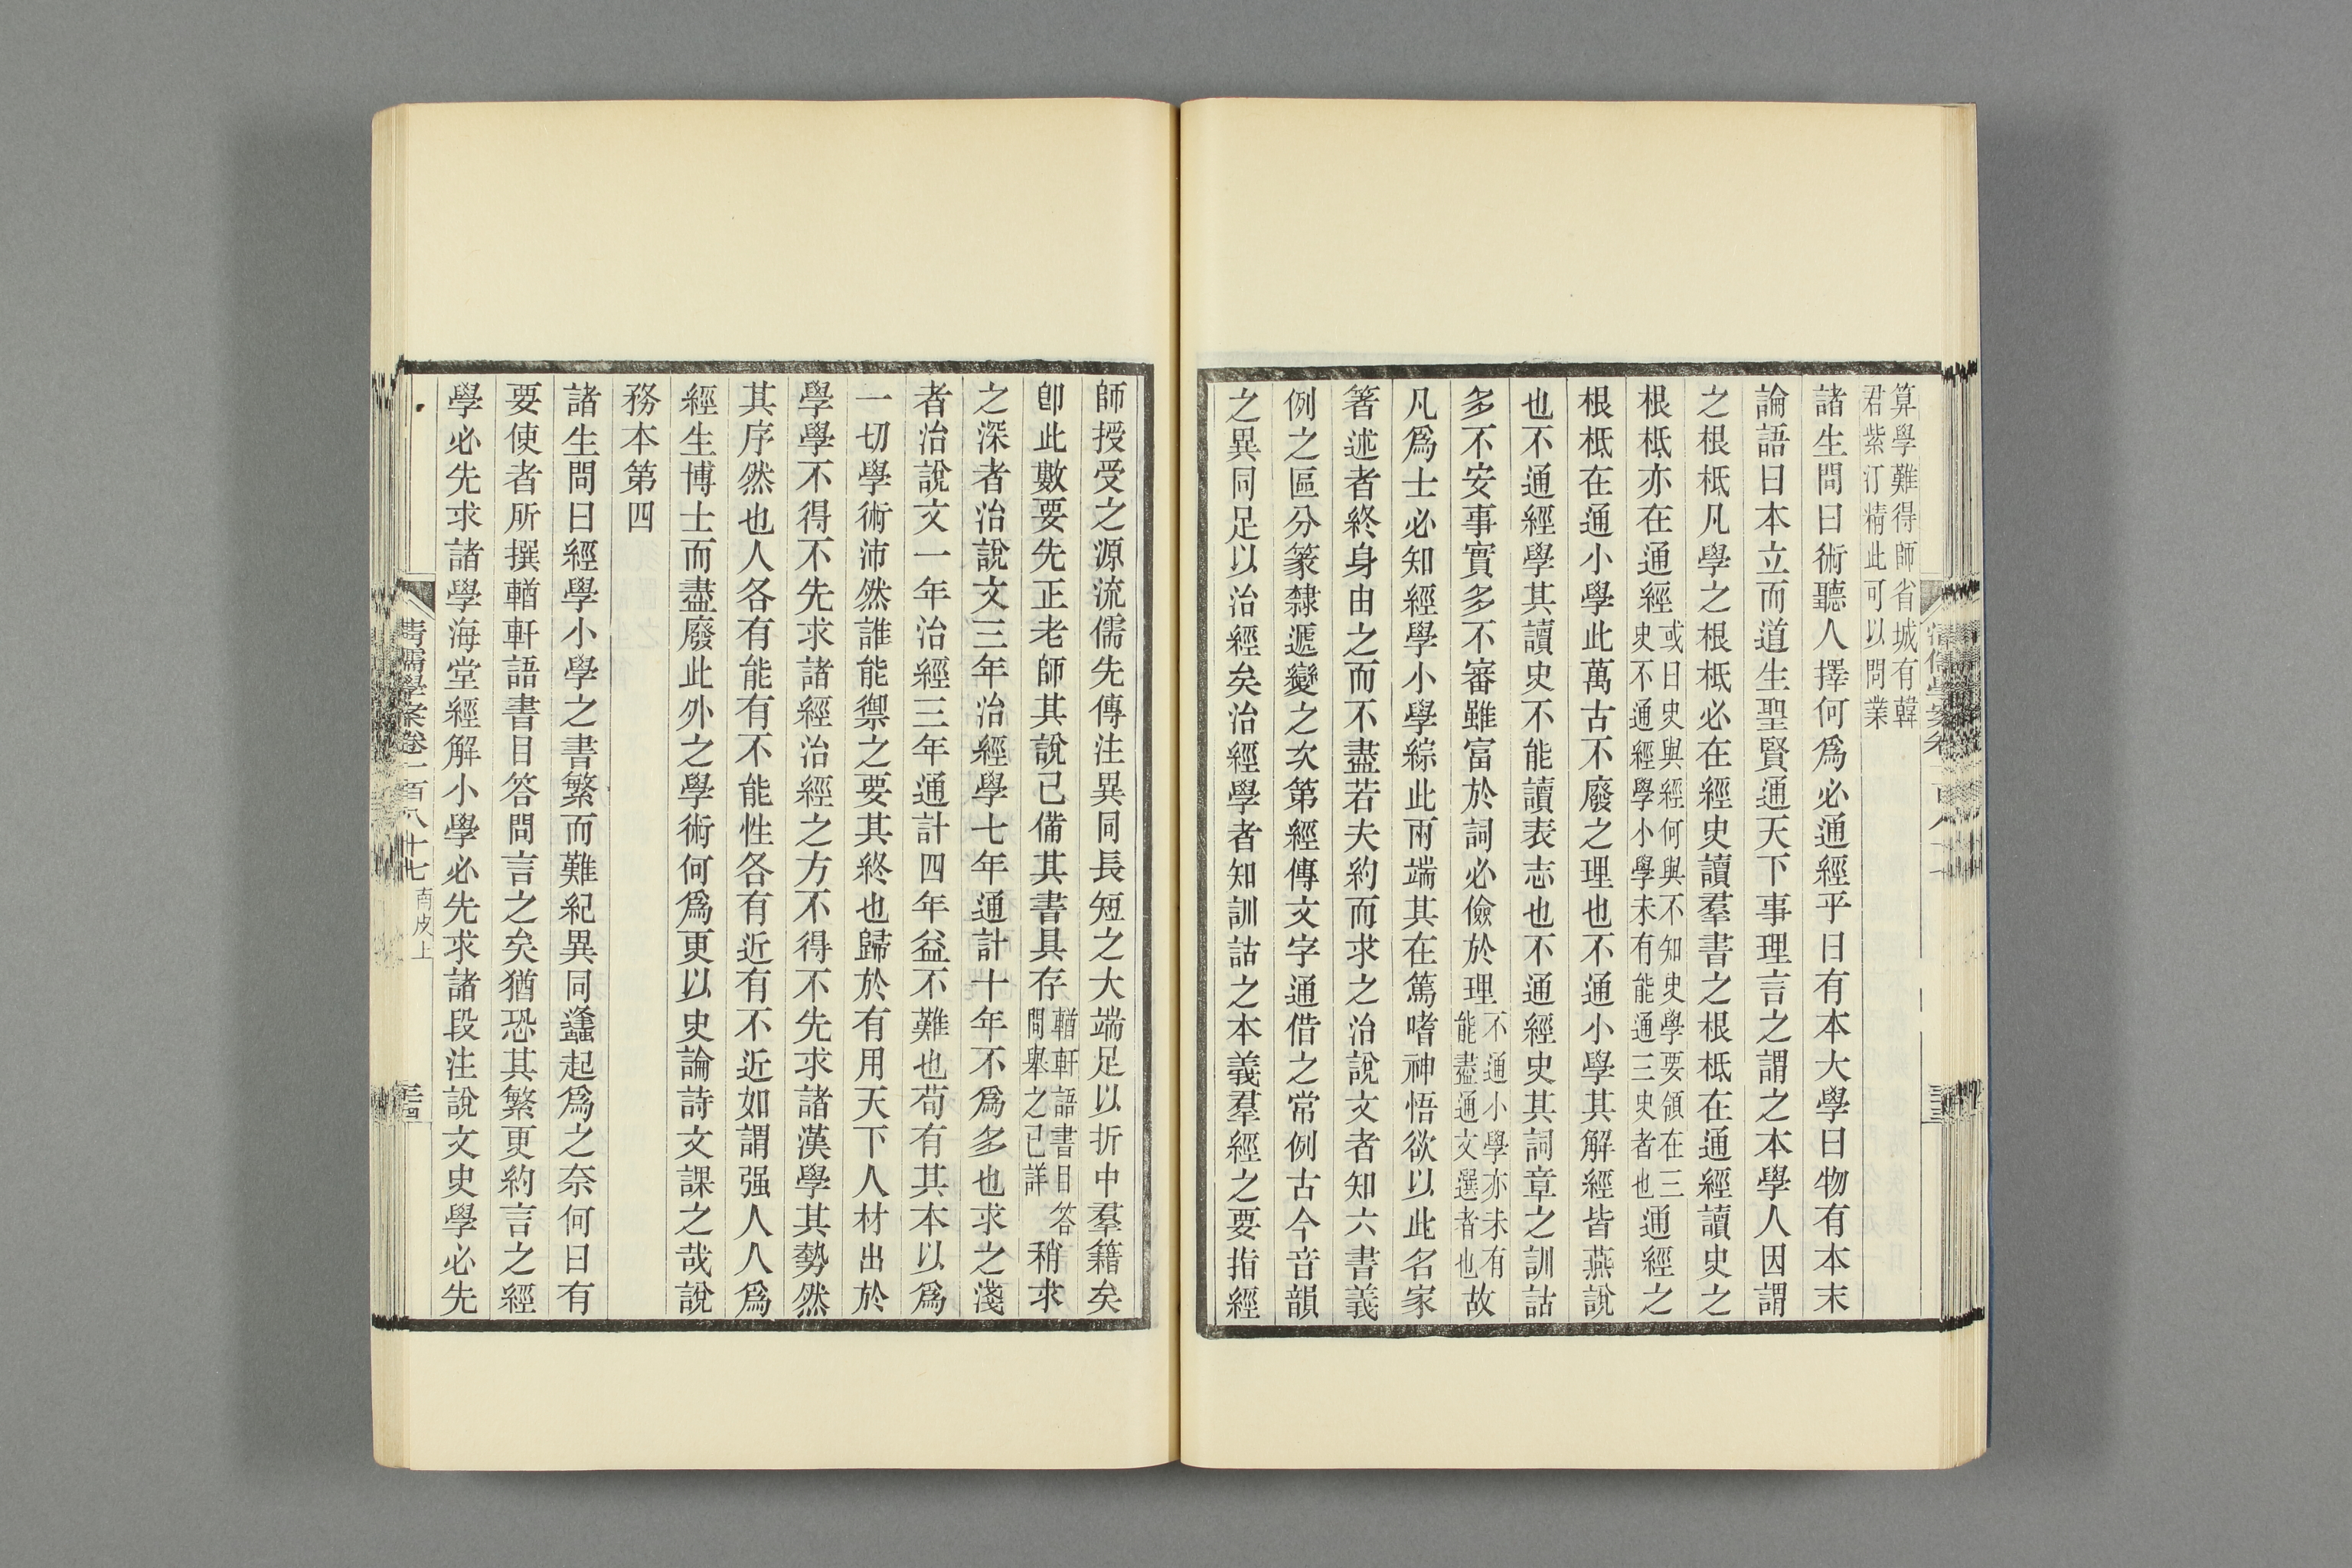 算學難得師省城有韓
君紫汀精此可以問業
諸生問曰術聽人擇何爲必通經乎曰有本大學曰物有本末
論語曰本立而道生聖賢通天下事理言之謂之本學人因謂
之根柢凡學之根柢必在經史讀羣書之根柢在通經讀史之
根柢亦在通經或曰史與經何與不知史學要領在三史不通經學小學未有能通三史者也通經之
根柢在通小學此萬古不廢之理也不通小學其解經皆燕說
也不通經學其讀史不能讀表志也不通經史其詞章之訓詁
多不安事實多不審雖富於詞必儉於理不通小學亦未有能盡通文選者也故
凡爲士必知經學小學綜此兩端其在篤嗜神悟欲以此名家
箸述者終身由之而不盡若夫約而求之治說文者知六書義
例之區分篆隸遞變之次第經傳文字通借之常例古今音韻
之異同足以治經矣治經學者知訓詁之本義羣經之要指經
師授受之源流儒先傳注異同長短之大端足以折中羣籍矣
卽此數要先正老師其說已備其書具存輶軒語書目答問舉之已詳稍求
之深者治說文三年治經學七年通計十年不爲多也求之淺
者治說文一年治經三年通計四年益不難也苟有其本以爲
一切學術沛然誰能禦之要其終也歸於有用天下人材出於
學學不得不先求諸經治經之方不得不先求諸漢學其勢然
其序然也人各有能有不能性各有近有不近如謂强人人爲
經生博士而盡廢此外之學術何爲更以史論詩文課之哉說
務本第四
諸生問曰經學小學之書繁而難紀異同蠭起爲之奈何曰有
要使者所撰輶軒語書目答問言之矣猶恐其繁更約言之經
學必先求諸學海堂經解小學必先求諸段注說文史學必先
清儒學案卷一百八十七 南皮上